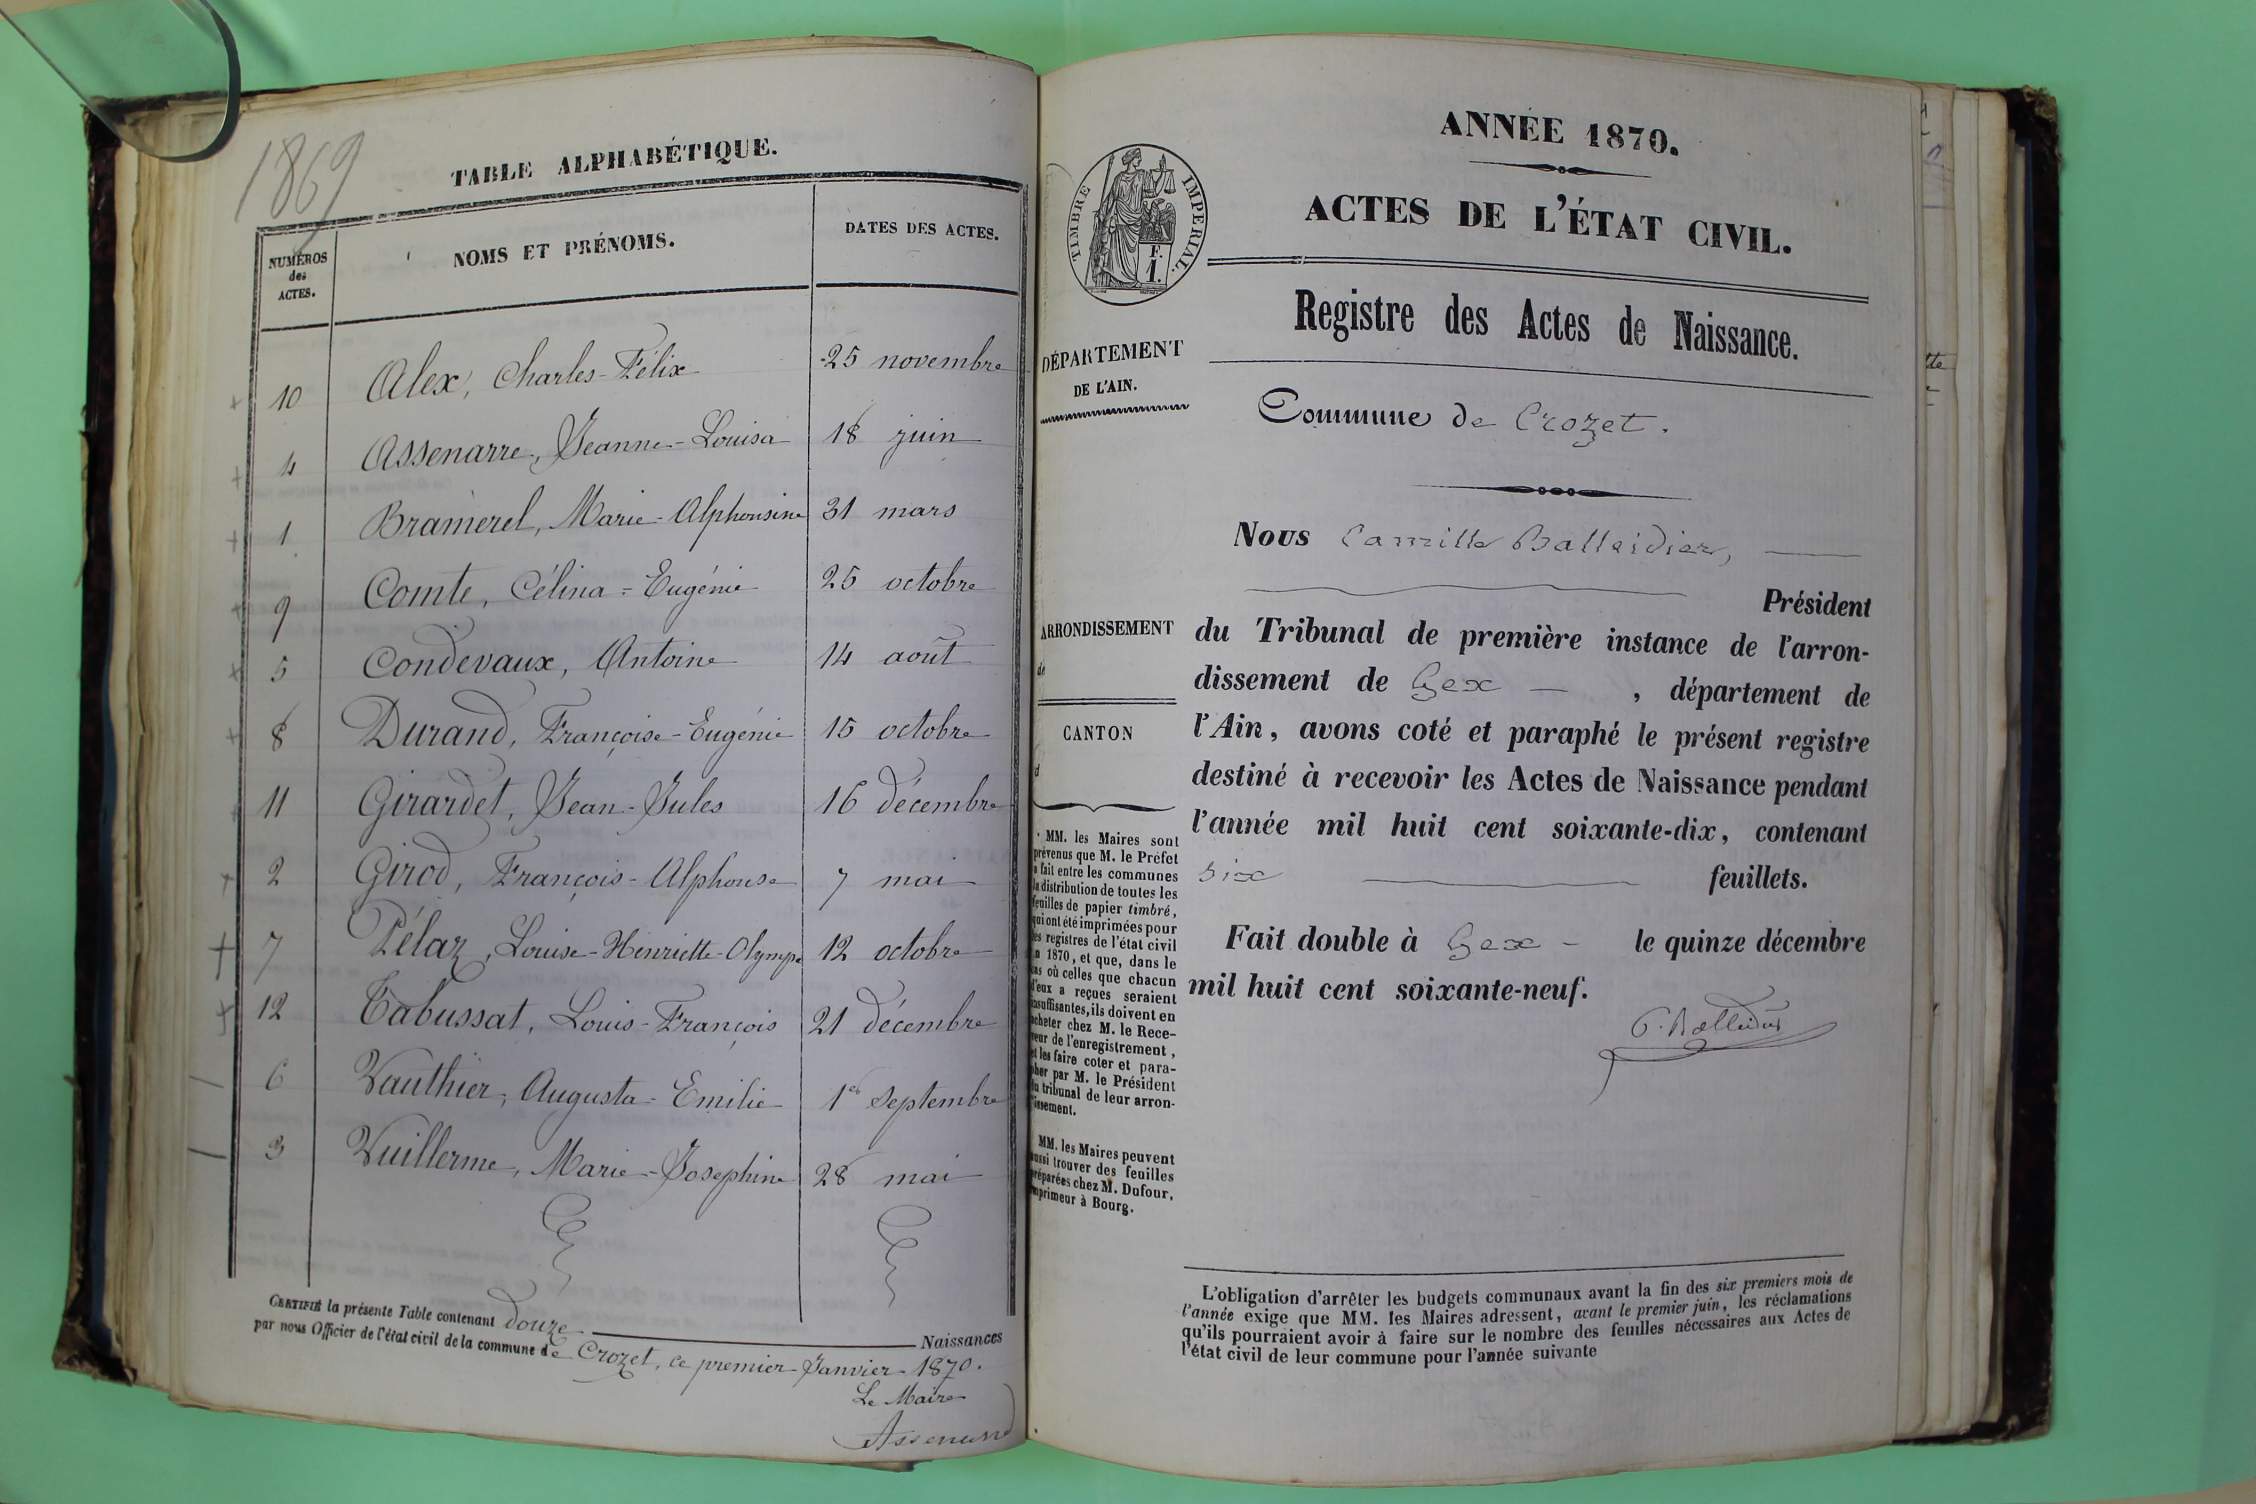 1869
TABLE ALPHABÉTIQUE.
NUMÉROS des ACTES.
NOMS ET PRÉNOMS.
DATES DES ACTES.
+ 10 Alex, Charles-Félix 25 novembre
+ 4 Assenarre, Jeanne-Louisa 18 juin
+ 1 Bramerel, Marie-Alphonsine 31 mars
+ 9 Comte, Célina=Eugénie 25 octobre
+ 5 Condevaux, Antoine 14 août
+ 8 Durand, Françoise-Eugénie 15 octobre
11 Girardet, Jean-Jules 16 décembre
+ 2 Girod, François-Alphonse 7 mai
+ 7 Pélaz, Louise-Henriette-Olympe 12 octobre
+ 12 Tabussat, Louis-François 21 décembre
— 6 Vauthier, Augusta-Emilie 1er septembre
— 3 Vuillerme, Marie-Josephine 28 mai
CERTIFIÉ la présente Table contenant douze Naissances
par nous Officier de l'état civil de la commune de Crozet, ce premier Janvier 1870.
Le Maire
Assenarre
ANNÉE 1870.
TIMBRE IMPERIAL.
F.
1.
ACTES DE L'ÉTAT CIVIL.
Registre des Actes de Naissance.
DÉPARTEMENT
DE L'AIN.
Commune de Crozet.
Nous Camille Balleidier,
Président
du Tribunal de première instance de l'arron-
dissement de Gex — , département de
l'Ain, avons coté et paraphé le présent registre
destiné à recevoir les Actes de Naissance pendant
l'année mil huit cent soixante-dix, contenant
six feuillets.
Fait double à Gex - le quinze décembre
mil huit cent soixante-neuf.
C. Balleidier
ARRONDISSEMENT
de
CANTON
d
MM. les Maires sont
prévenus que M. le Préfet
a fait entre les communes
la distribution de toutes les
feuilles de papier timbré,
qui ont été imprimées pour
les registres de l'état civil
en 1870, et que, dans le
cas où celles que chacun
d'eux a reçues seraient
insuffisantes, ils doivent en
acheter chez M. le Rece-
veur de l'enregistrement,
et les faire coter et para-
pher par M. le Président
du tribunal de leur arron-
dissement.
MM. les Maires peuvent
aussi trouver des feuilles
préparées chez M. Dufour,
imprimeur à Bourg.
L'obligation d'arrêter les budgets communaux avant la fin des six premiers mois de
l'année exige que MM. les Maires adressent, avant le premier juin, les réclamations
qu'ils pourraient avoir à faire sur le nombre des feuilles nécessaires aux Actes de
l'état civil de leur commune pour l'année suivante